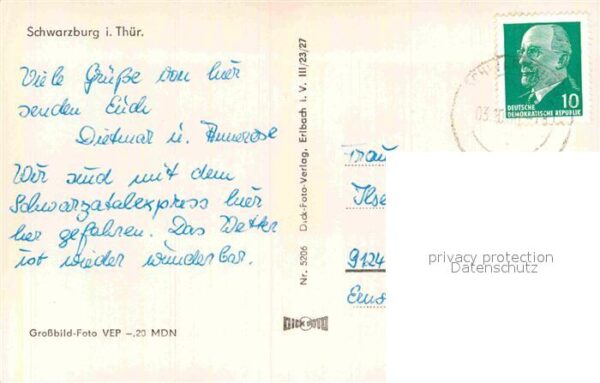 Schwarzburg i. Thür.
Viele Grüße von hier
senden Euch
Dietmar u. Annerose
Wir sind mit dem
Schwarzatalexpress hier
her gefahren. Das Wetter
ist wieder wunderbar.
Großbild-Foto VEP –,20 MDN
Nr. 5206 Dick-Foto-Verlag, Erlbach i. V. III/23/27
DEUTSCHE
DEMOKRATISCHE REPUBLIK
10
Frau
Ilse
9124
privacy protection
Datenschutz